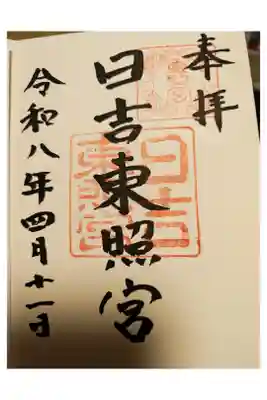 奉拝
日吉東照宮
日吉東照宮
令和八年四月十一日